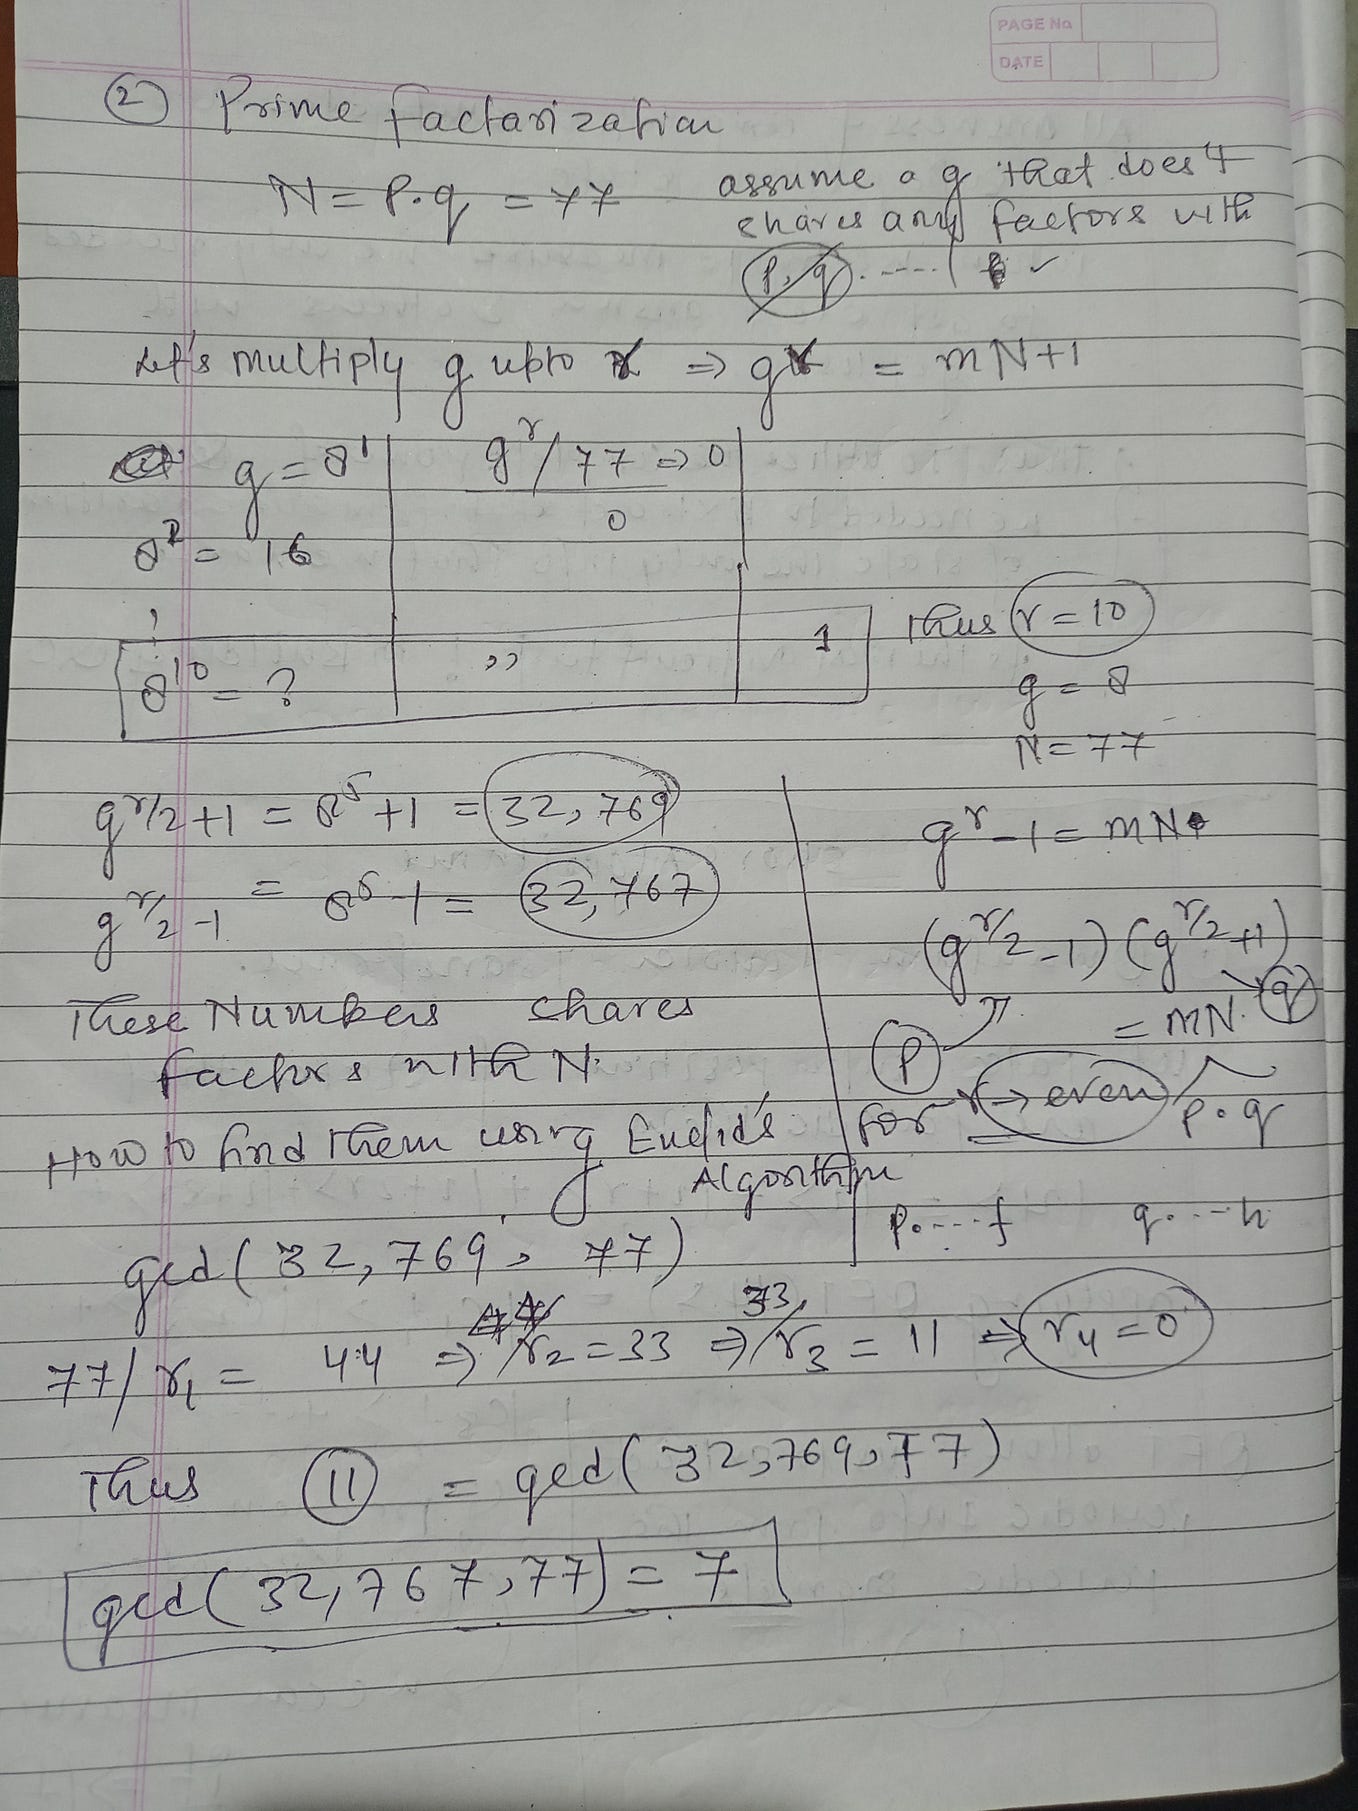 PAGE No
DATE
② Prime factorization
N = P.q = 77
assume a g that does't
shares any factors with
p, q ..... ✓
Let's multiply g upto r ⇒ g^r = mN+1
g = 8^1
g^r / 77 ⇒ 0
0
8^2 = 16
8^10 = ?
,,
1
Thus r = 10
g = 8
N = 77
g^r/2 + 1 = 8^5 + 1 = 32,769
g^r/2 - 1 = 8^5 - 1 = 32,767
g^r - 1 = mN
(g^r/2 - 1) (g^r/2 + 1)
= mN. q
P
for r → even
p.q
p.---f q.---h
These Numbers shares
factors with N.
How to find them using Euclid's
Algorithm
gcd ( 32,769, 77)
77/r1 = 44 ⇒ 44/r2 = 33 ⇒ 33/r3 = 11 ⇒ r4 = 0
Thus 11 = gcd( 32,769,77)
gcd( 32,767,77) = 7